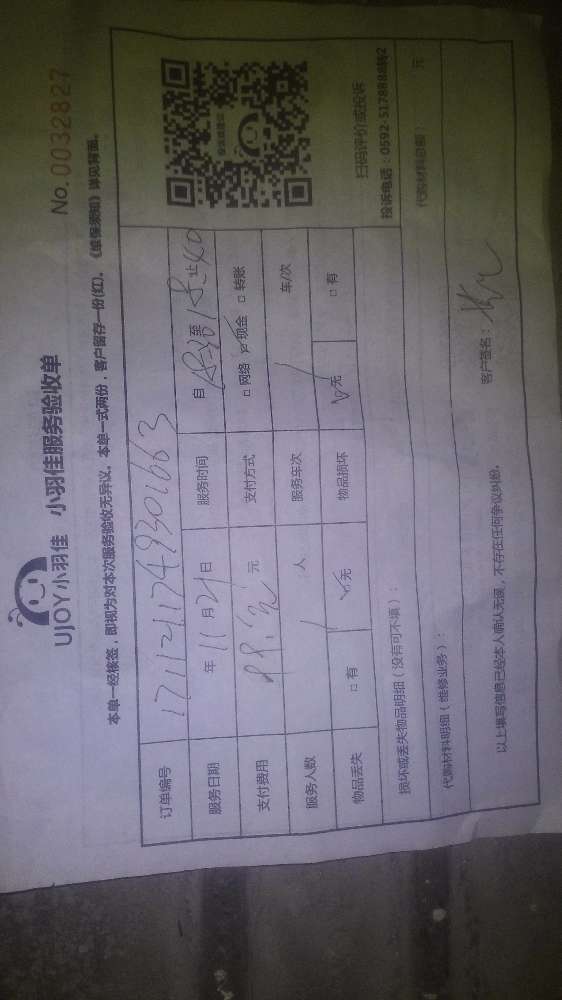 UJOY小羽佳 小羽佳服务验收单
No. 0032827
本单一经核签，即视为对本次服务验收无异议。本单一式两份，客户留存一份(红)。《维保须知》详见背面。
订单编号 171121174930 1663
服务日期 年 11 月 21 日 服务时间 自 18:30 至 18 止 40
支付费用 元 支付方式 □ 网络 ☑ 现金 □ 转账
服务人数 / 人 服务车次 / 车/次
物品丢失 □ 有 ☑ 无 物品损坏 ☑ 无 □ 有
扫码评价或投诉
投诉电话：0592-5178888转2
损坏或丢失物品明细（没有可不填）：
代购材料明细（维修业务）： 代购材料总额： 元
以上填写信息已经本人确认无误，不存在任何争议纠纷。 客户签名：